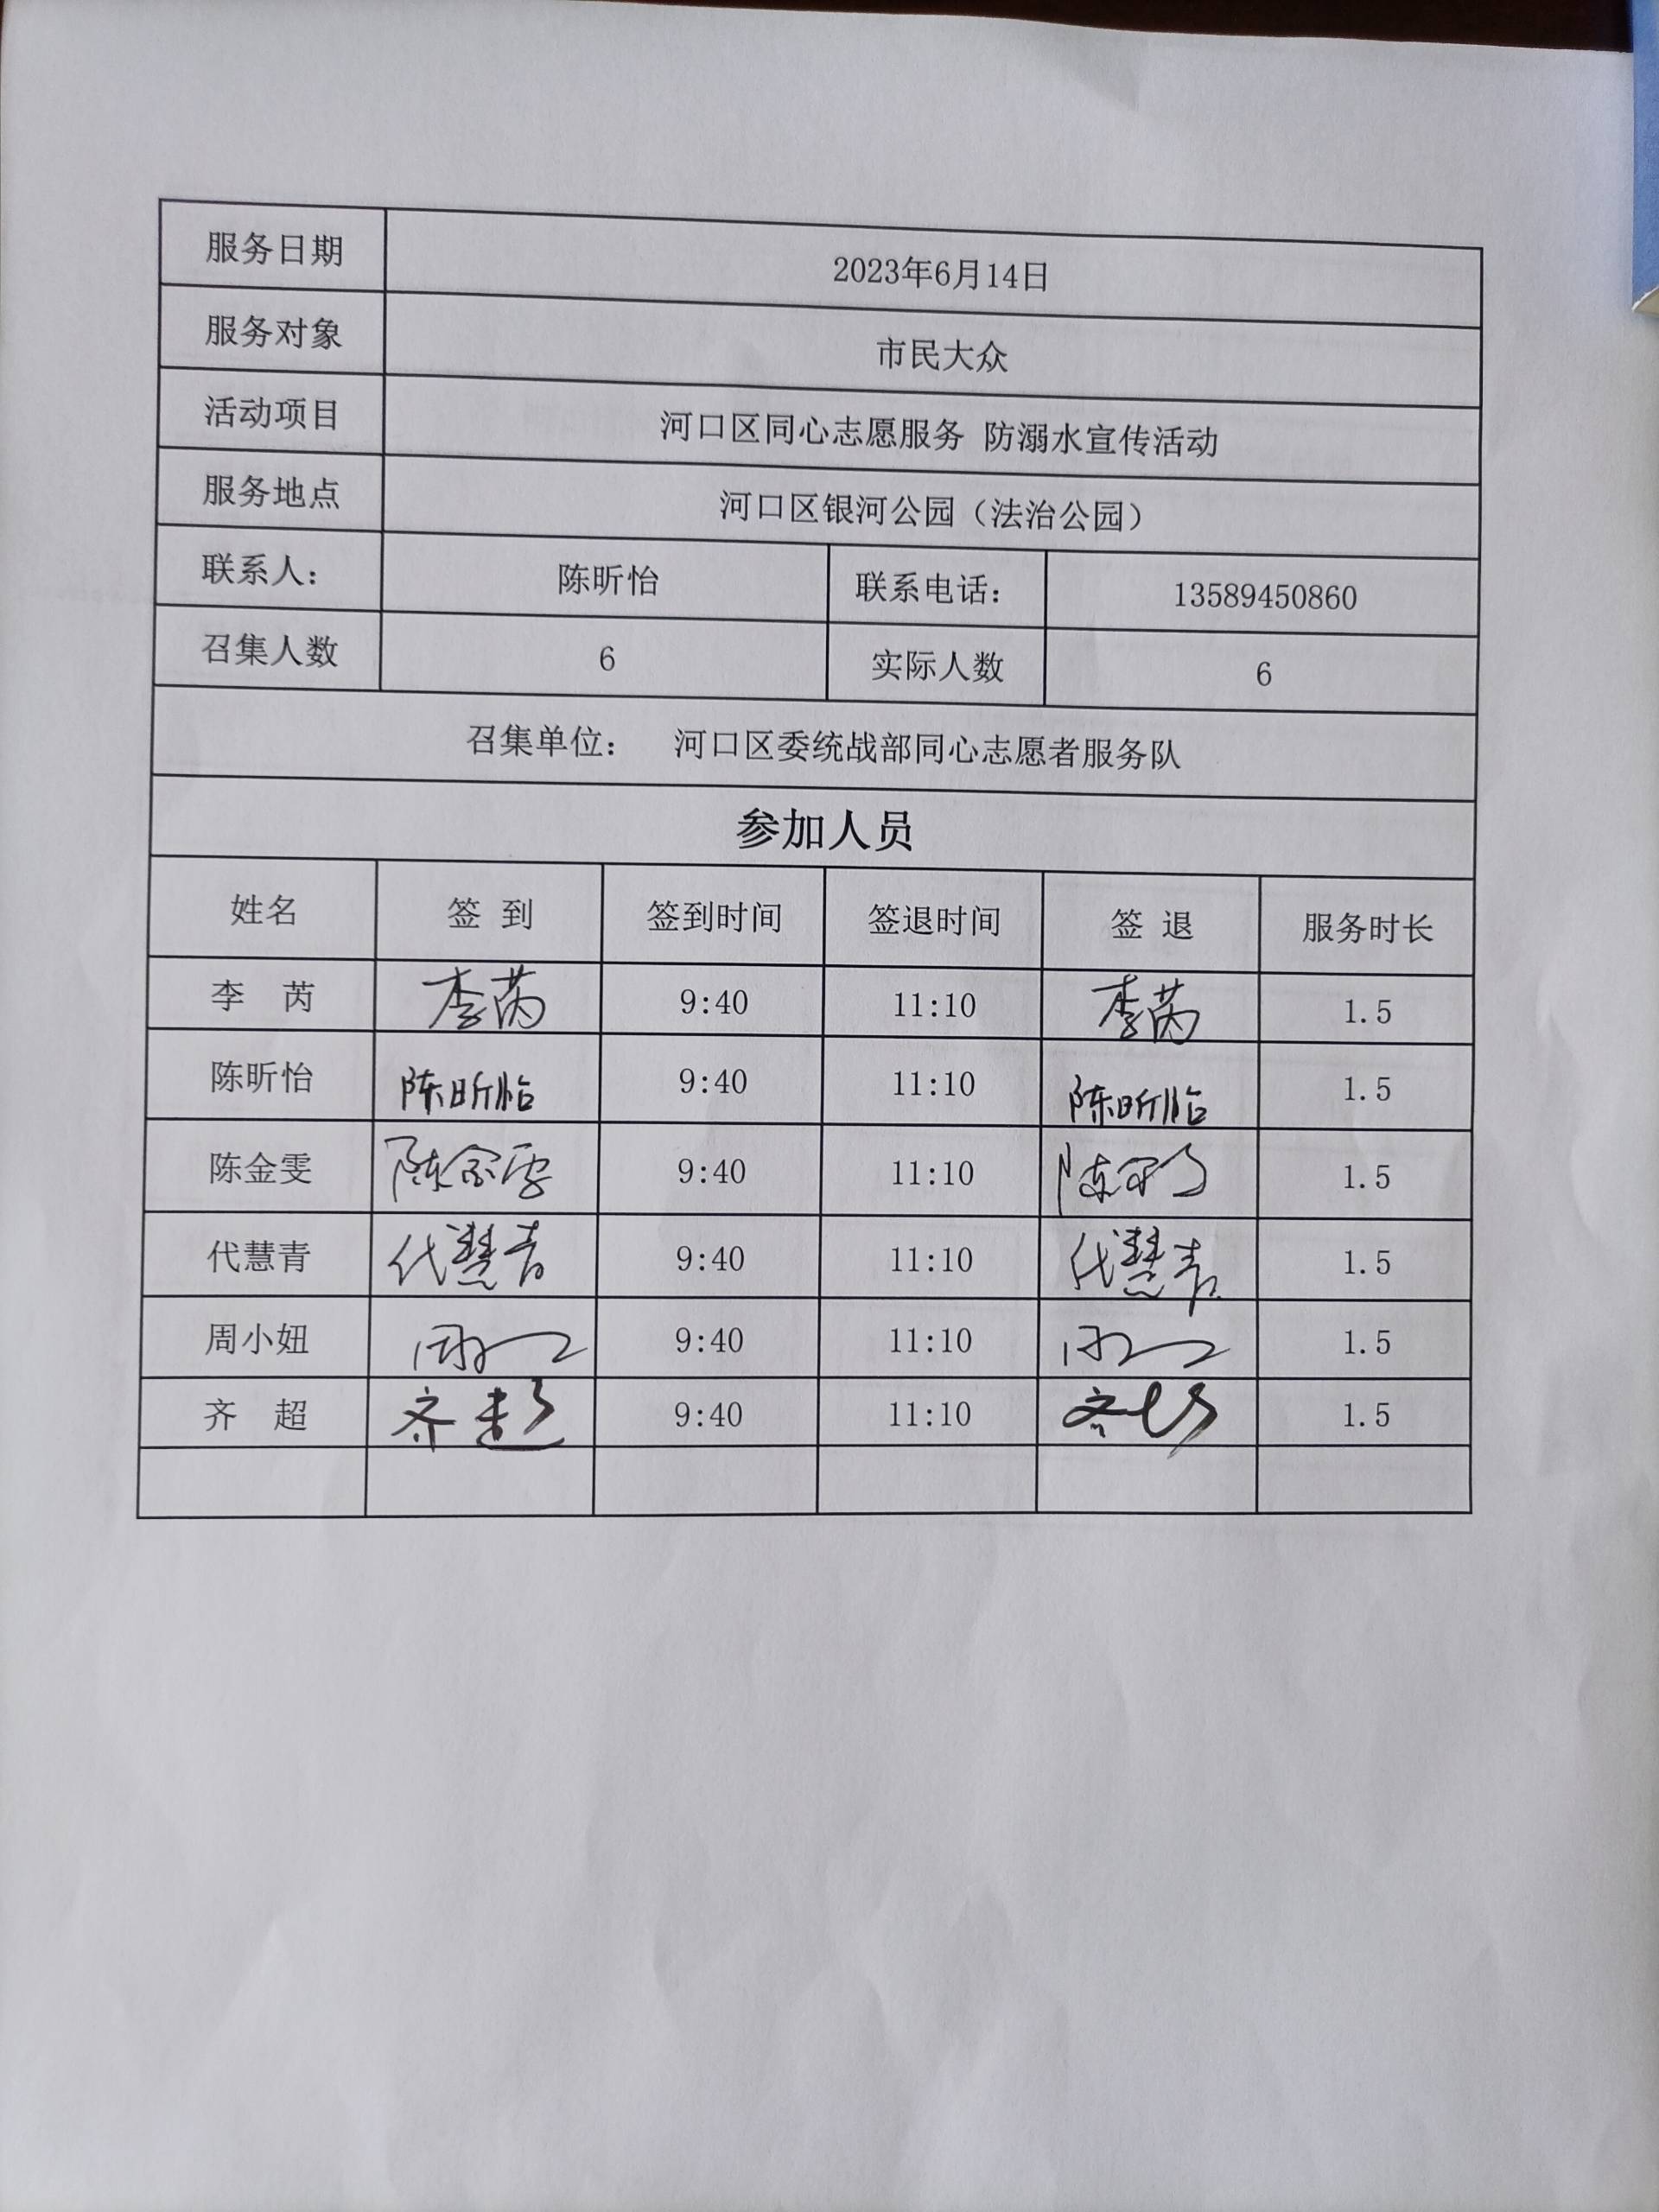 服务日期 2023年6月14日
服务对象 市民大众
活动项目 河口区同心志愿服务 防溺水宣传活动
服务地点 河口区银河公园（法治公园）
联系人： 陈昕怡 联系电话： 13589450860
召集人数 6 实际人数 6
召集单位： 河口区委统战部同心志愿者服务队
参加人员
姓名 签 到 签到时间 签退时间 签 退 服务时长
李 芮 李芮 9:40 11:10 李芮 1.5
陈昕怡 陈昕怡 9:40 11:10 陈昕怡 1.5
陈金雯 陈金雯 9:40 11:10 1.5
代慧青 代慧青 9:40 11:10 代慧青 1.5
周小妞 9:40 11:10 1.5
齐 超 齐超 9:40 11:10 齐超 1.5